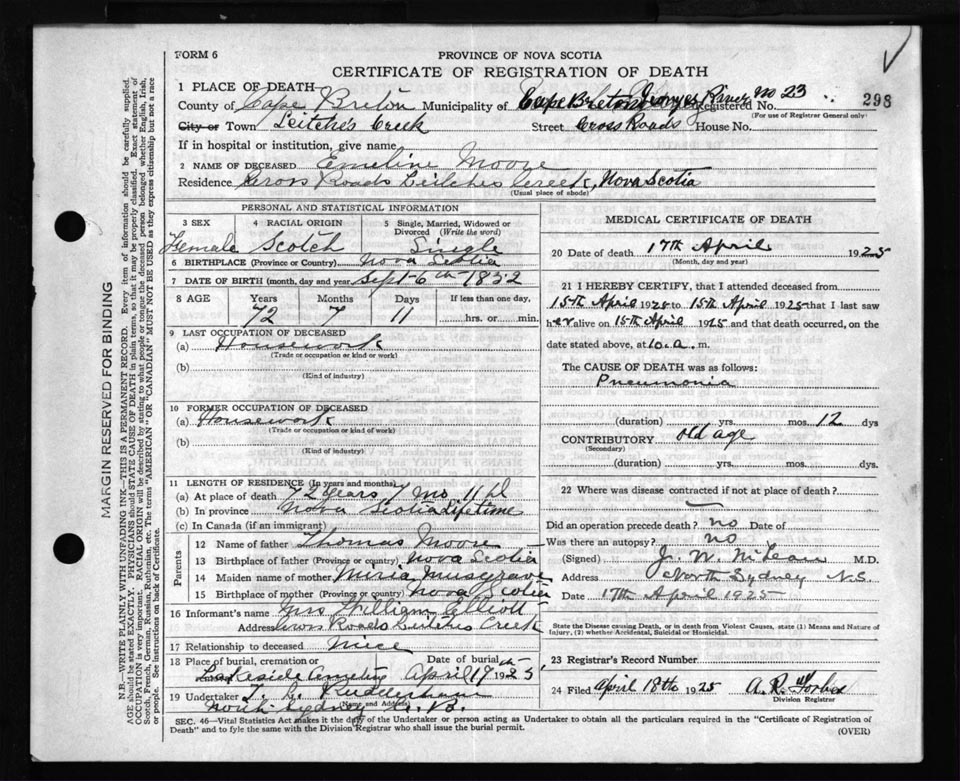 FORM 6
PROVINCE OF NOVA SCOTIA
CERTIFICATE OF REGISTRATION OF DEATH
298
1 PLACE OF DEATH
County of Cape Breton Municipality of Cape Breton Georges River no 23 Registered No.
(For use of Registrar General only)
City or Town Leitches Creek Street Cross Roads House No.
If in hospital or institution, give name
2 NAME OF DECEASED Emeline Moore
Residence Cross Roads Leitches Creek, Nova Scotia
(Usual place of abode)
PERSONAL AND STATISTICAL INFORMATION
3 SEX 4 RACIAL ORIGIN 5 Single, Married, Widowed or Divorced (Write the word)
Female Scotch Single
6 BIRTHPLACE (Province or Country) Nova Scotia
7 DATE OF BIRTH (month, day and year) Sept 6th 1852
8 AGE Years Months Days If less than one day,
72 7 11 hrs. or min.
9 LAST OCCUPATION OF DECEASED
(a) Housework
(Trade or occupation or kind or work)
(b)
(Kind of industry)
10 FORMER OCCUPATION OF DECEASED
(a) Housework
(Trade or occupation or kind of work)
(b)
(Kind of industry)
11 LENGTH OF RESIDENCE (In years and months)
(a) At place of death 72 years 7 mo 11 d
(b) In province Nova Scotia Lifetime
(c) In Canada (if an immigrant)
Parents
12 Name of father Thomas Moore
13 Birthplace of father (Province or country) Nova Scotia
14 Maiden name of mother Maria Musgrave
15 Birthplace of mother (Province or country) Nova Scotia
16 Informant's name Mrs William Elliott
Address Cross Roads Leitches Creek
17 Relationship to deceased niece
18 Place of burial, cremation or Date of burial
Lakeside Cemetery April 19th 1925
19 Undertaker
(Name and Address)
North Sydney C. B.
MEDICAL CERTIFICATE OF DEATH
20 Date of death 17th April 1925
(Month, day and year)
21 I HEREBY CERTIFY, that I attended deceased from
15th April 1925 to 15th April 1925 that I last saw
her alive on 15th April 1925 and that death occurred, on the
date stated above, at 10. a. m.
The CAUSE OF DEATH was as follows:
Pneumonia
(duration) yrs. mos. 12 dys
CONTRIBUTORY old age
(Secondary)
(duration) yrs. mos. dys.
22 Where was disease contracted if not at place of death?
Did an operation precede death? no Date of
Was there an autopsy? no
(Signed) J. W. McLean M.D.
Address North Sydney N.S.
Date 17th April 1925
State the Disease causing Death, or in death from Violent Causes, state (1) Means and Nature of
Injury, (2) whether Accidental, Suicidal or Homicidal.
23 Registrar's Record Number
24 Filed April 18th 1925 A. R. Forbes
Division Registrar
SEC. 46—Vital Statistics Act makes it the duty of the Undertaker or person acting as Undertaker to obtain all the particulars required in the "Certificate of Registration of
Death" and to fyle the same with the Division Registrar who shall issue the burial permit.
(OVER)
MARGIN RESERVED FOR BINDING
N.B.—WRITE PLAINLY WITH UNFADING INK—THIS IS A PERMANENT RECORD. Every item of information should be carefully supplied.
AGE should be stated EXACTLY. PHYSICIANS should STATE CAUSE OF DEATH in plain terms, so that it may be properly classified. Exact statement of
OCCUPATION is very important. RACIAL ORIGIN will be described by stating to what people or tongue the deceased person belonged whether English, Irish,
Scotch, French, German, Russian, Ruthenian, etc. The terms "AMERICAN" OR "CANADIAN" MUST NOT BE USED as they express citizenship but not a race
or people. See instructions on back of Certificate.